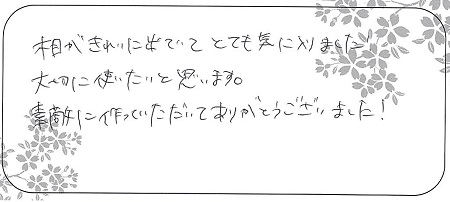 木目がきれいに出ていてとても気に入りました!
大切に使いたいと思います。
素敵に作っていただいてありがとうございました!